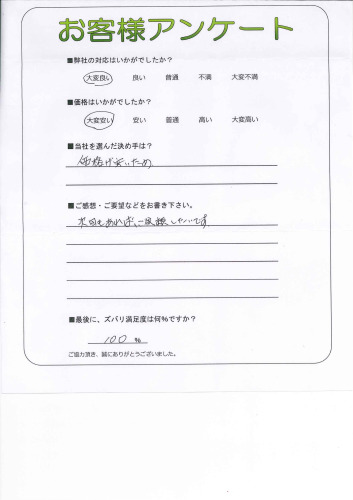 お客様アンケート
■弊社の対応はいかがでしたか?
大変良い 良い 普通 不満 大変不満
■価格はいかがでしたか?
大変安い 安い 普通 高い 大変高い
■当社を選んだ決め手は?
価格が安いため
■ご感想・ご要望などをお書き下さい。
次回もあれば、したいです
■最後に、ズバリ満足度は何%ですか?
100 %
ご協力頂き、誠にありがとうございました。